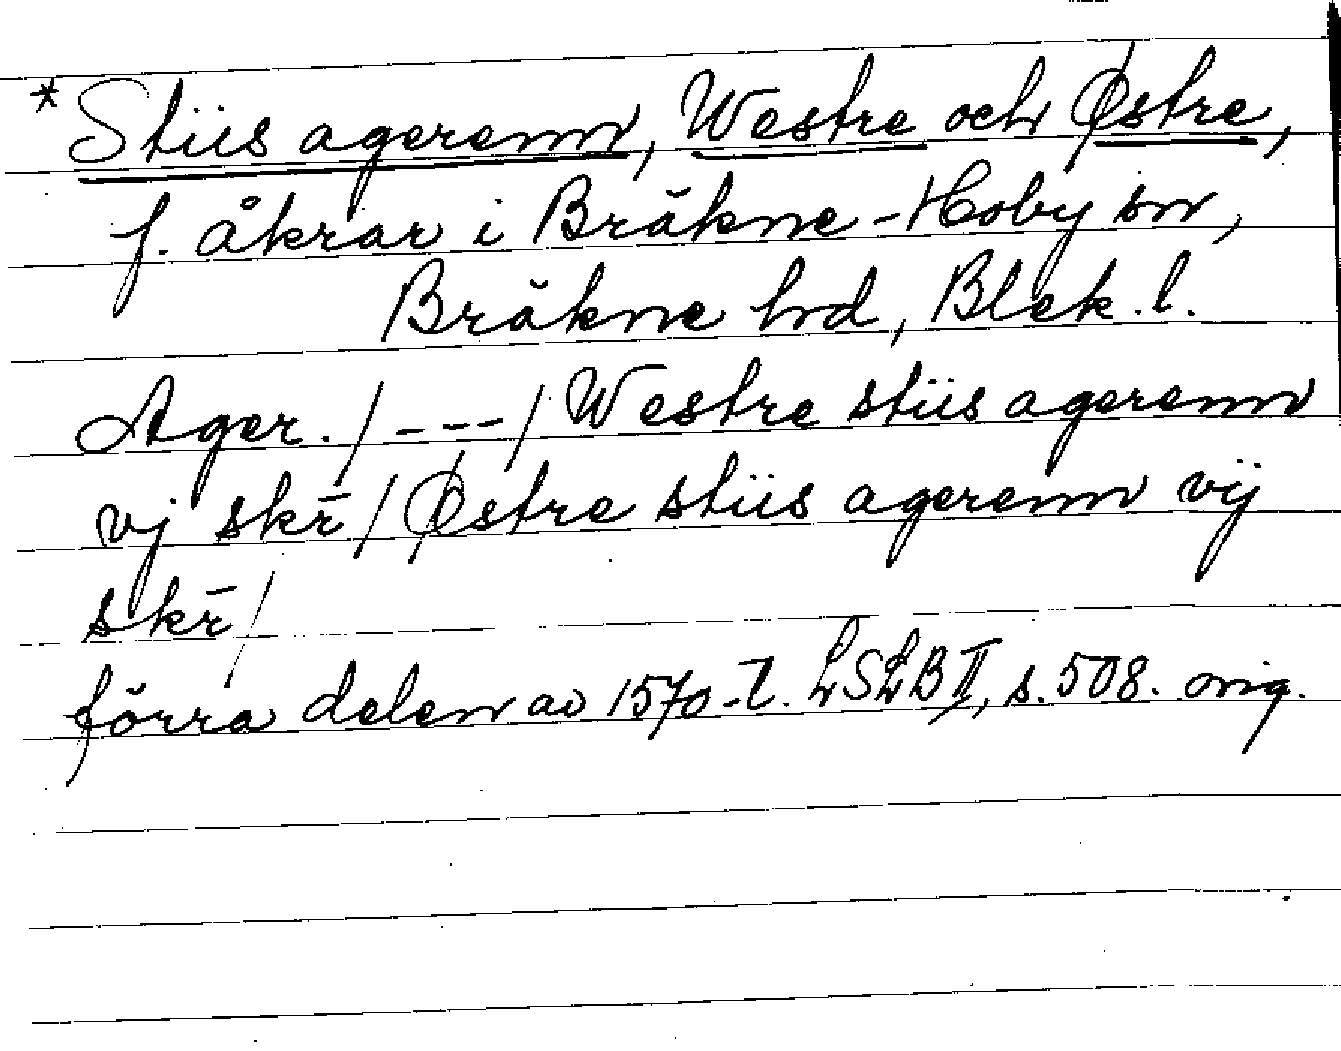 * Stiis agerenn, Westre och Østre,
f. åkrar i Bräkne-Hoby sn,
Bräkne hd, Blek. l.
Ager./---/Westre stiis agerenn
vj skr̄/Østre stiis agerenn vij
skr̄/
förra delen av 1570-t. LSLB II, s. 508. orig.